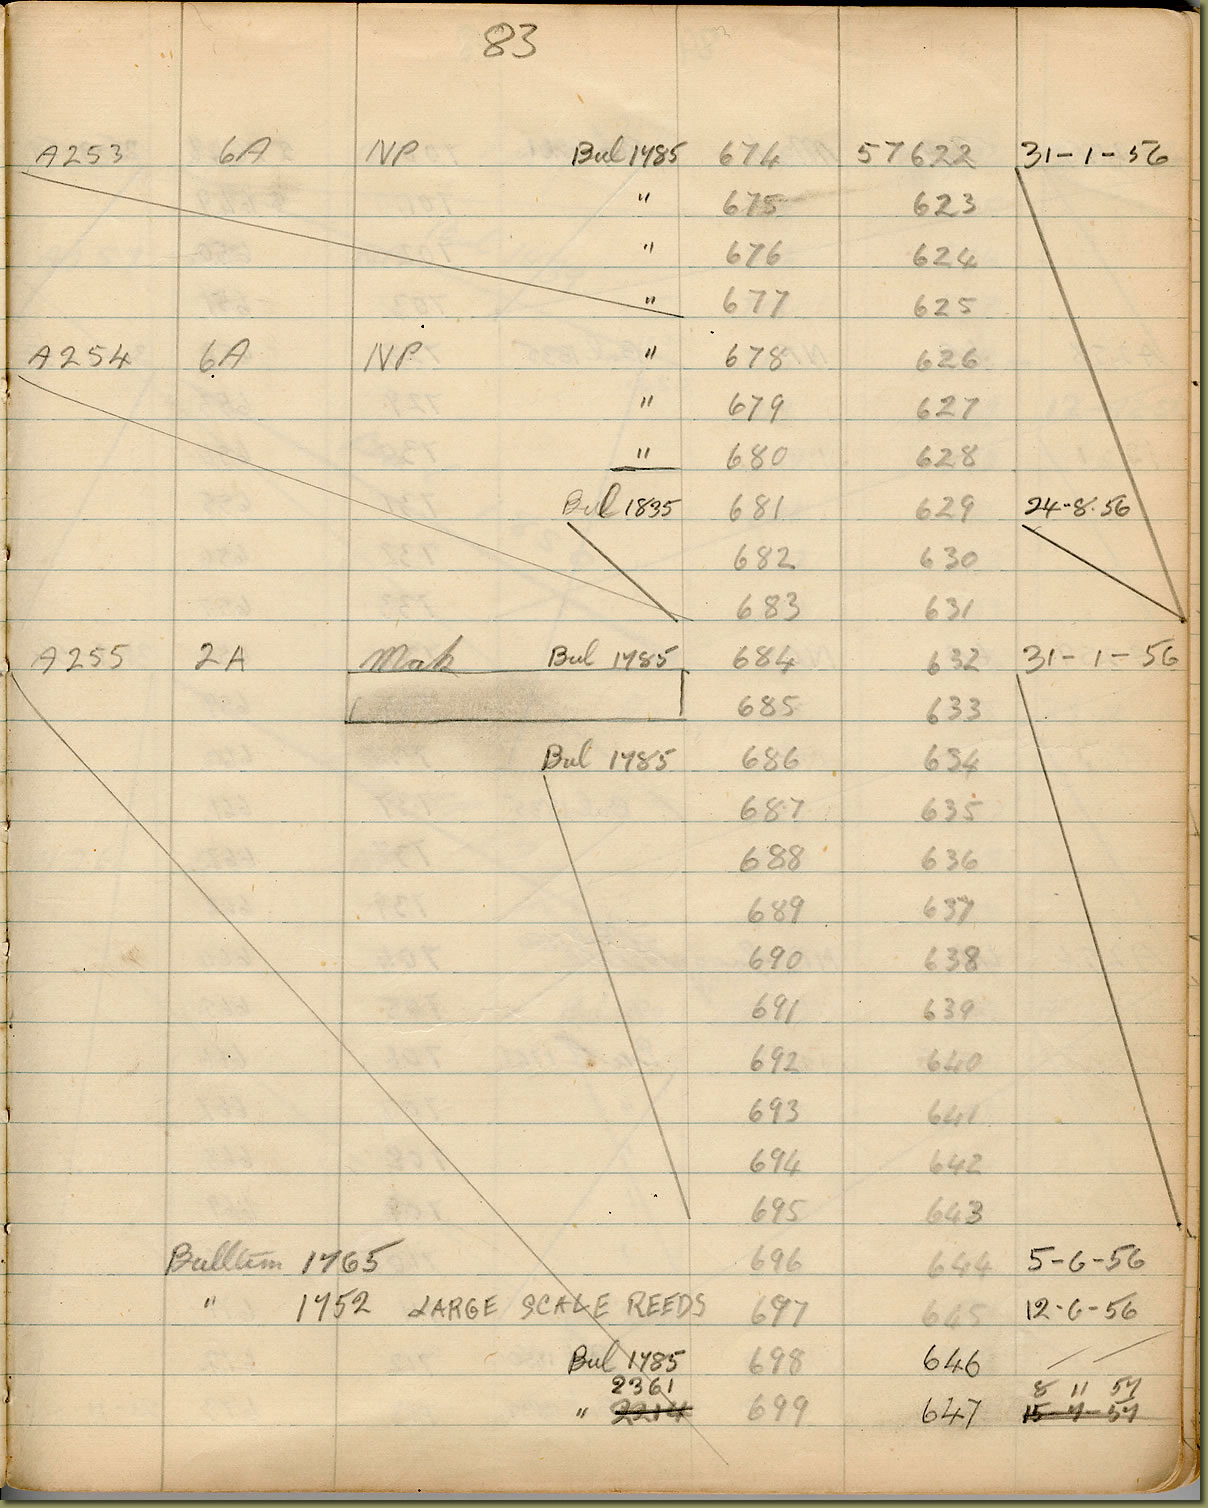 83
A253 6A NP Bul 1785 674 57622 31-1-56
" 675 623
" 676 624
" 677 625
A254 6A NP " 678 626
" 679 627
" 680 628
Bul 1835 681 629 24-8-56
682 630
683 631
A255 2A Mak Bul 1785 684 632 31-1-56
685 633
Bul 1785 686 634
687 635
688 636
689 637
690 638
691 639
692 640
693 641
694 642
695 643
Bulltin 1765 696 644 5-6-56
" 1752 LARGE SCALE REEDS 697 645 12-6-56
Bul 1785 698 646
2361 8 11 57
" 2214 699 647 15-7-57